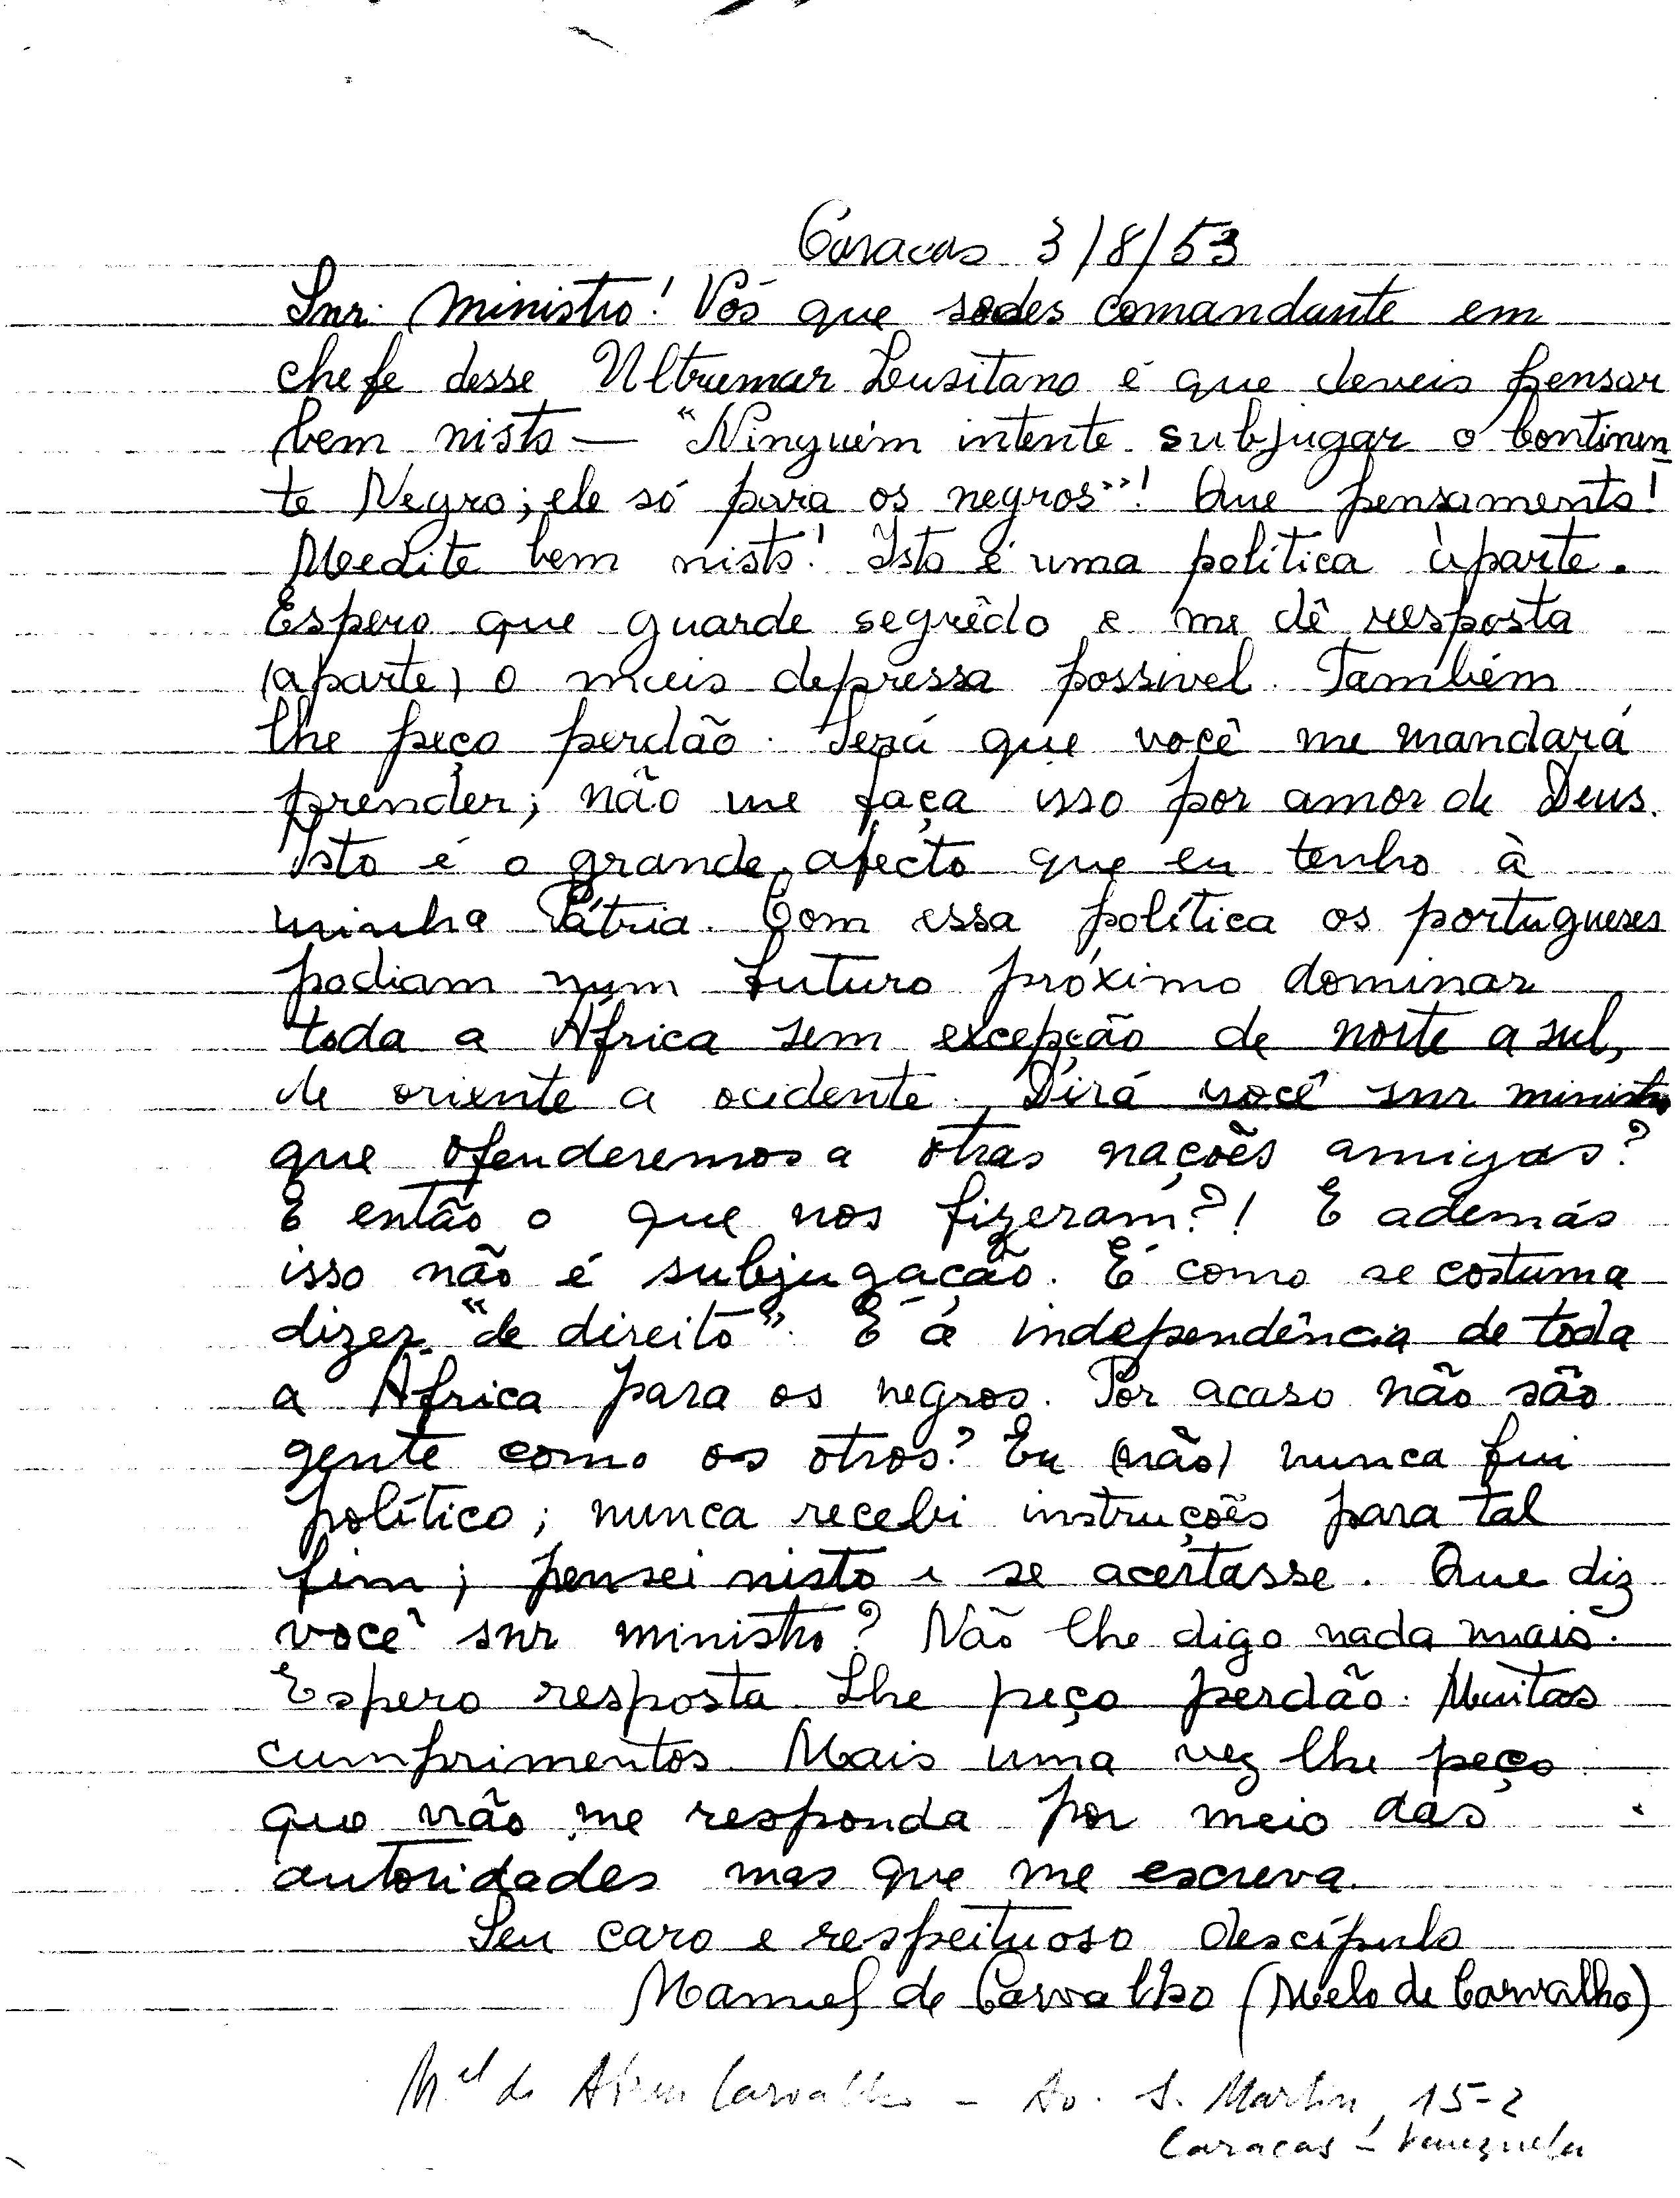 Caracas 3/8/53
Snr. Ministro! Vós que sodes comandante em
chefe desse Ultremar Lusitano é que deveis pensar
bem nisto — "Ninguém intente subjugar o Continen
te Negro; ele só para os negros"! Que pensamento!
Medite bem nisto! Isto é uma política àparte.
Espero que guarde segrêdo e me dê resposta
(aparte) o mais depressa possivel. Também
lhe peço perdão. Será que você me mandará
prender; não me faça isso por amor de Deus.
Isto é o grande afecto que eu tenho à
minha Pátria. Com essa política os portugueses
podiam num futuro próximo dominar
toda a Africa sem excepção de norte a sul,
de oriente a ocidente. Dirá você snr ministro
que ofenderemos a otras nações amigas?
E então o que nos fizeram?! E además
isso não é subjugação. É como se costuma
dizer "de direito". E a independência de toda
a Africa para os negros. Por acaso não são
gente como os otros? Eu (não) nunca fui
político; nunca recebi instruções para tal
fim; pensei nisto e se acertasse. Que diz
você snr ministro? Não lhe digo nada mais.
Espero resposta. Lhe peço perdão. Muitas
cumprimentos. Mais uma vez lhe peço
que não me responda por meio das
autoridades mas que me escreva.
Seu caro e respeituoso descípulo
Manuel de Carvalho (Melo de Carvalho)
Mel de Abreu Carvalho - Av. S. Martin, 15-2
Caracas - Venezuela